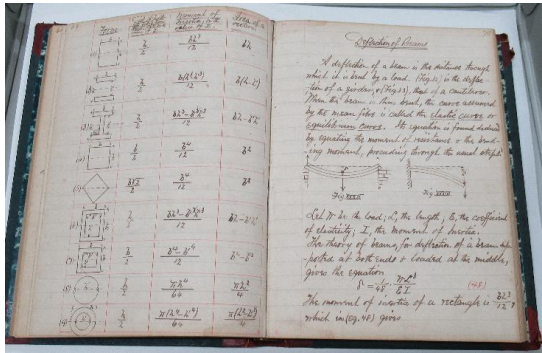 Form
Moment of
Area of a
section
h/2
bh³/12
bh
h/2
b(h³-h'³)/12
b(h-h')
h/2
bh³-b'h'³/12
bh-b'h'
h/2
b⁴/12
b²
b√2/2
b⁴/12
b²
h/2
bh³-b'h'³/12
bh-b'h'
h/2
b⁴-b'⁴/12
b²-b'²
h/2
πh⁴/64
πh²/4
h/2
π(h⁴-h'⁴)/64
π(h²-h'²)/4
Deflection of Beams
A deflection of a beam is the distance through
which it is bent by a load. (Fig. is the deflec-
tion of a girder, & (Fig. that of a cantilever.
When the beam is thus bent, the curve assumed
by the mean fibre is called the elastic curve or
equilibrium curve. Its equation is found
by equating the moment of resistance & the bend-
ing moment, proceeding through the usual
Fig.
Fig.
Let W be the load; L, the length; E, the coefficient
of elasticity; I, the moment of inertia.
The theory of beams, for deflection of a beam sup-
ported at both ends & loaded at the middle,
gives the equation
δ = 1/48 · WL³/EI (48)
The moment of inertia of a rectangle is bh³/12,
which in (eq. 48) gives